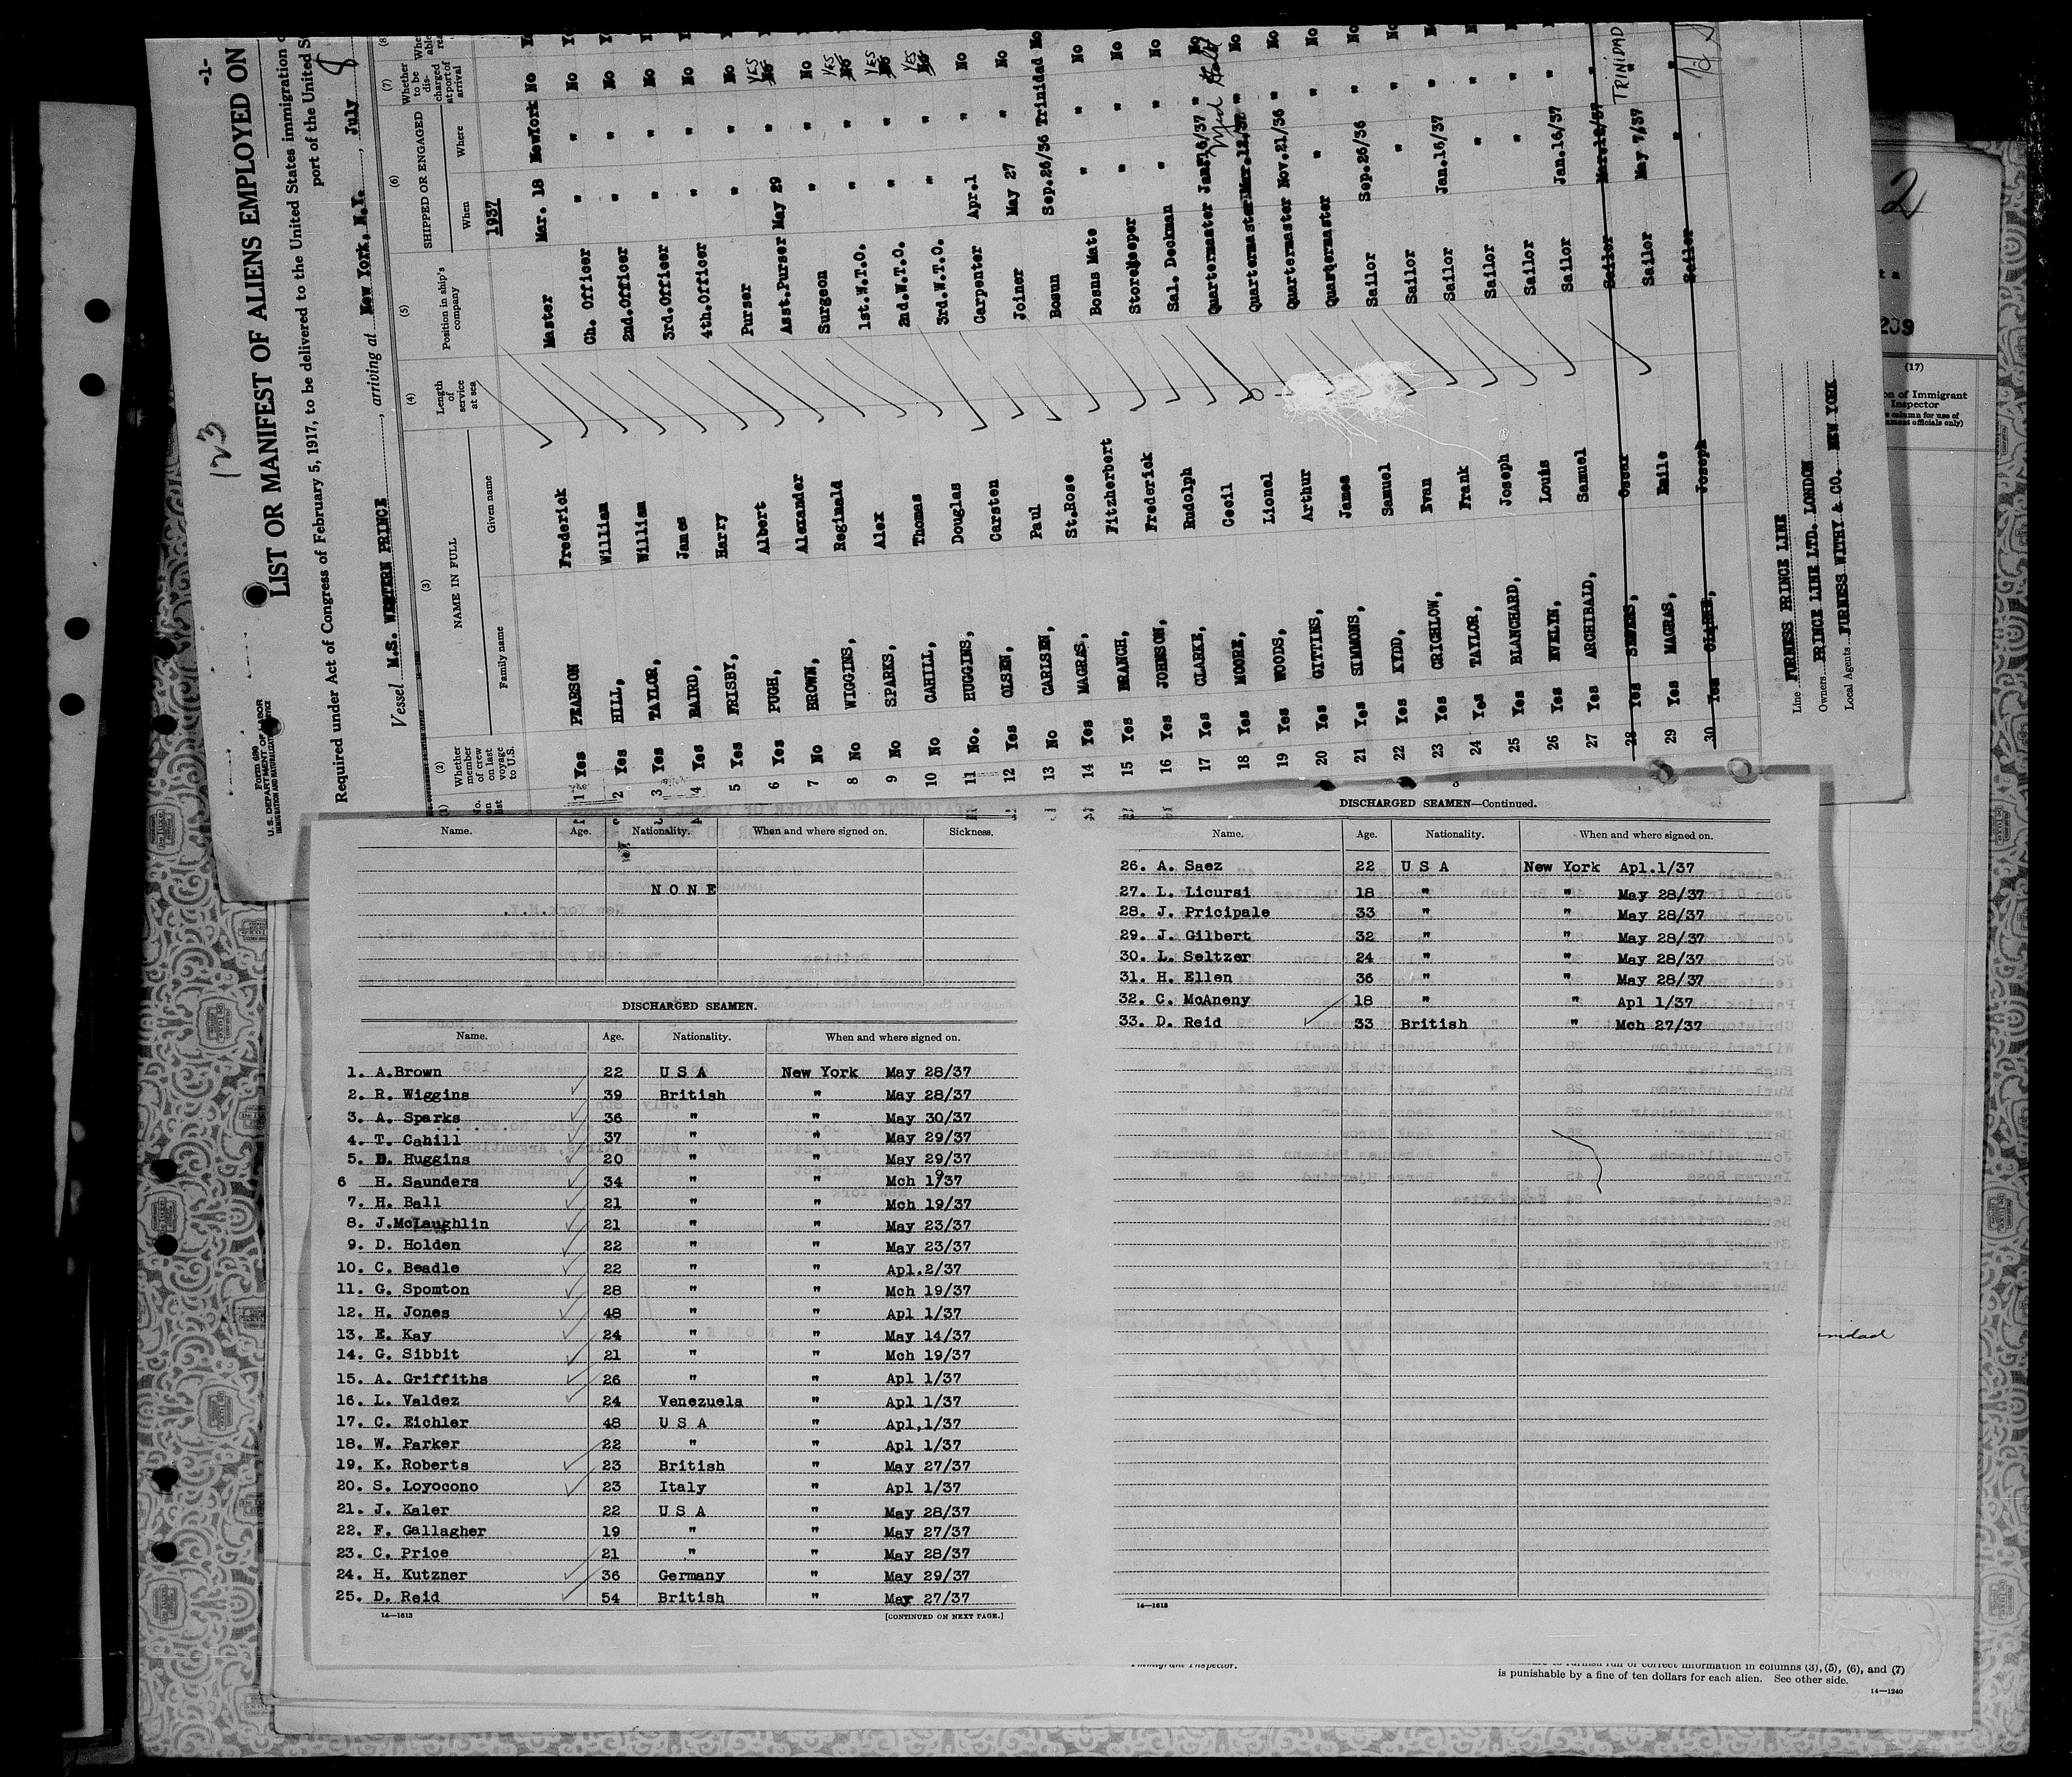 -1-
123
Form 689
U. S. DEPARTMENT OF LABOR
IMMIGRATION AND NATURALIZATION
LIST OR MANIFEST OF ALIENS EMPLOYED ON
Required under Act of Congress of February 5, 1917, to be delivered to the United States immigration
port of the United
Vessel M.S. WESTERN PRINCE, arriving at New York, N.Y., July 8
(2) (3) (4) (5) (6) (7)
No. on list
Whether member of crew on last voyage to U.S.
NAME IN FULL
Family name Given name
Length of service at sea
Position in ship's company
SHIPPED OR ENGAGED
When Where
Whether to be discharged at port of arrival
1937
1 Yes PEARSON Frederick Master Mar. 18 NewYork No
2 Yes HILL, William Ch. Officer " " No
3 Yes TAYLOR, William 2nd.Officer " " No
4 Yes BAIRD, James 3rd.Officer " " No
5 Yes FRISBY, Harry 4th.Officer " " No
6 Yes PUGH, Albert Purser " " No
7 No BROWN, Alexander Asst.Purser May 29 " No YES
8 No WIGGINS, Reginald Surgeon " " No
9 No SPARKS, Alex 1st.W.T.O. " " No YES
10 No CAHILL, Thomas 2nd.W.T.O. " " No YES
11 No. HUGGINS, Douglas 3rd.W.T.O. " " No YES
12 Yes OLSEN, Carsten Carpenter Apr.1 " No
13 No CARLSEN, Paul Joiner May 27 " No
14 Yes MAGRAS, St.Rose Bosun Sep.26/36 Trinidad No
15 Yes BRANCH, Fitzherbert Bosns Mate " " No
16 Yes JOHNSON, Frederick Storekeeper " " No
17 Yes CLARKE, Rudolph Sal. Deckman " " No
18 Yes MOORE, Cecil Quartermaster Jan.16/37 " No
19 Yes WOODS, Lionel Quartermaster Mar.12/37 " No
20 Yes GITTINS, Arthur Quartermaster Nov.21/36 " No
21 Yes SIMMONS, James Quartermaster " " No
22 Yes KYDD, Samuel Sailor Sep.26/36 " No
23 Yes CRICHLOW, Evan Sailor " " No
24 Yes TAYLOR, Frank Sailor Jan.16/37 "
25 Yes BLANCHARD, Joseph Sailor " "
26 Yes EVELYN, Louis Sailor " "
27 Yes ARCHIBALD, Samuel Sailor Jan.16/37 "
28 Yes Oscar Sailor Mar.12/37 "
29 Yes MAGRAS, Baile Sailor May 7/37 " TRINIDAD
30 Yes CLARKE, Joseph Sailor " "
Line FURNESS PRINCE LINE
Owners PRINCE LINE LTD. LONDON
Local Agents FURNESS WITHY & CO. NEW YORK
2
209
(17)
on of Immigrant
Inspector
column for use of
ment officials only)
Name. Age. Nationality. When and where signed on. Sickness.
NONE
DISCHARGED SEAMEN.
Name. Age. Nationality. When and where signed on.
1. A.Brown 22 U S A New York May 28/37
2. R. Wiggins 39 British " May 28/37
3. A. Sparks 36 " " May 30/37
4. T. Cahill 37 " " May 29/37
5. D. Huggins 20 " " May 29/37
6 H. Saunders 34 " " Mch 19/37
7. H. Ball 21 " " Mch 19/37
8. J.McLaughlin 21 " " May 23/37
9. D. Holden 22 " " May 23/37
10. C. Beadle 22 " " Apl.2/37
11. G. Spomton 28 " " Mch 19/37
12. H. Jones 48 " " Apl 1/37
13. E. Kay 24 " " May 14/37
14. G. Sibbit 21 " " Mch 19/37
15. A. Griffiths 26 " " Apl 1/37
16. L. Valdez 24 Venezuela " Apl 1/37
17. C. Eichler 48 U S A " Apl,1/37
18. W. Parker 22 " " Apl 1/37
19. K. Roberts 23 British " May 27/37
20. S. Loyocono 23 Italy " Apl 1/37
21. J. Kaler 22 U S A " May 28/37
22. F. Gallagher 19 " " May 27/37
23. C. Price 21 " " May 28/37
24. H. Kutzner 36 Germany " May 29/37
25. D. Reid 54 British " May 27/37
14—1613 [CONTINUED ON NEXT PAGE.]
DISCHARGED SEAMEN—Continued.
Name. Age. Nationality. When and where signed on.
26. A. Saez 22 U S A New York Apl.1/37
27. L. Licursi 18 " " May 28/37
28. J. Pricipale 33 " " May 28/37
29. J. Gilbert 32 " " May 28/37
30. L. Seltzer 24 " " May 28/37
31. H. Ellen 36 " " May 28/37
32. C. McAneny 18 " " Apl 1/37
33. D. Reid 33 British " Mch 27/37
14—1613
Immigrant Inspector.
correct information in columns (3), (5), (6), and (7)
is punishable by a fine of ten dollars for each alien. See other side.
14—1240